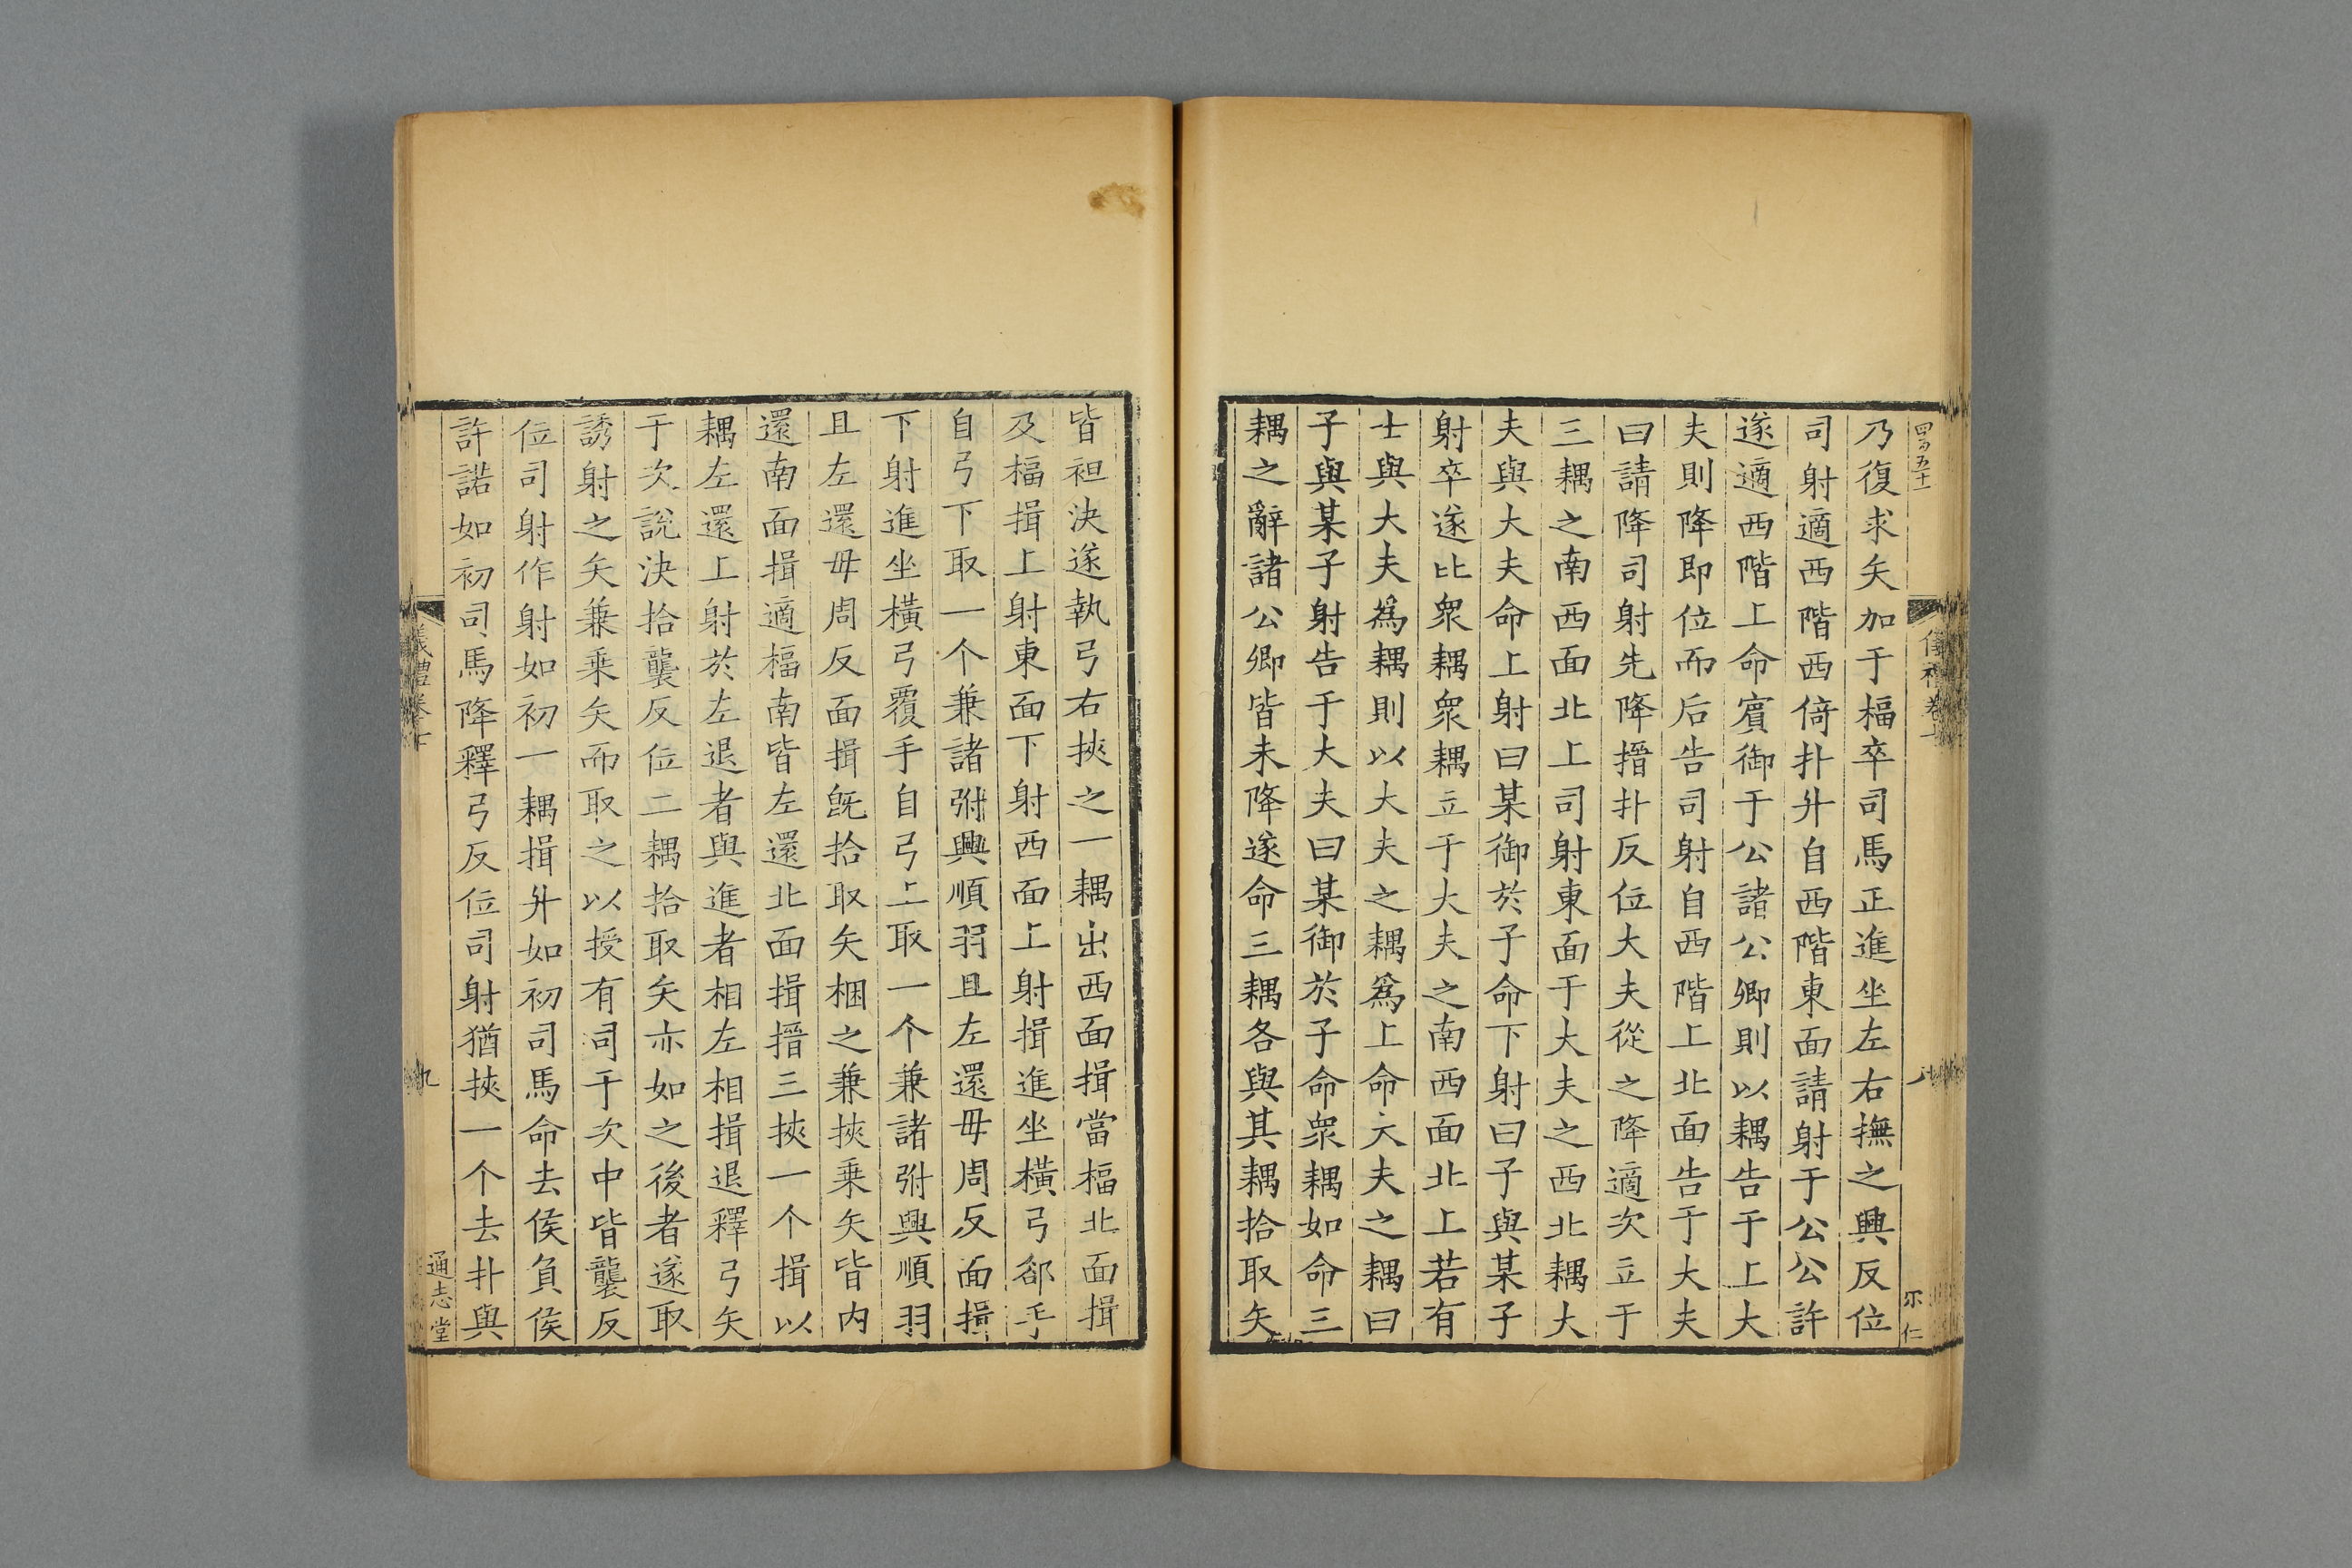 乃復求矢加于楅卒司馬正進坐左右撫之興反位
司射適西階西倚扑升自西階東面請射于公公許
遂適西階上命賓御于公諸公卿則以耦告于上大
夫則降即位而后告司射自西階上北面告于大夫
曰請降司射先降搢扑反位大夫從之降適次立于
三耦之南西面北上司射東面于大夫之西北耦大
夫與大夫命上射曰某御於子命下射曰子與某子
射卒遂比衆耦衆耦立于大夫之南西面北上若有
士與大夫為耦則以大夫之耦為上命大夫之耦曰
子與某子射告于大夫曰某御於子命衆耦如命三
耦之辭諸公卿皆未降遂命三耦各與其耦拾取矢
皆袒決遂執弓右挾之一耦出西面揖當楅北面揖
及楅揖上射東面下射西面上射揖進坐橫弓郤手
自弓下取一个兼諸弣興順羽且左還毋周反面揖
下射進坐橫弓覆手自弓上取一个兼諸弣興順羽
且左還毋周反面揖既拾取矢梱之兼挾乘矢皆內
還南面揖適楅南皆左還北面揖搢三挾一个揖以
耦左還上射於左退者與進者相左相揖退釋弓矢
于次說決拾襲反位二耦拾取矢亦如之後者遂取
誘射之矢兼乘矢而取之以授有司于次中皆襲反
位司射作射如初一耦揖升如初司馬命去侯負侯
許諾如初司馬降釋弓反位司射猶挾一个去扑與
儀禮卷七
九
通志堂